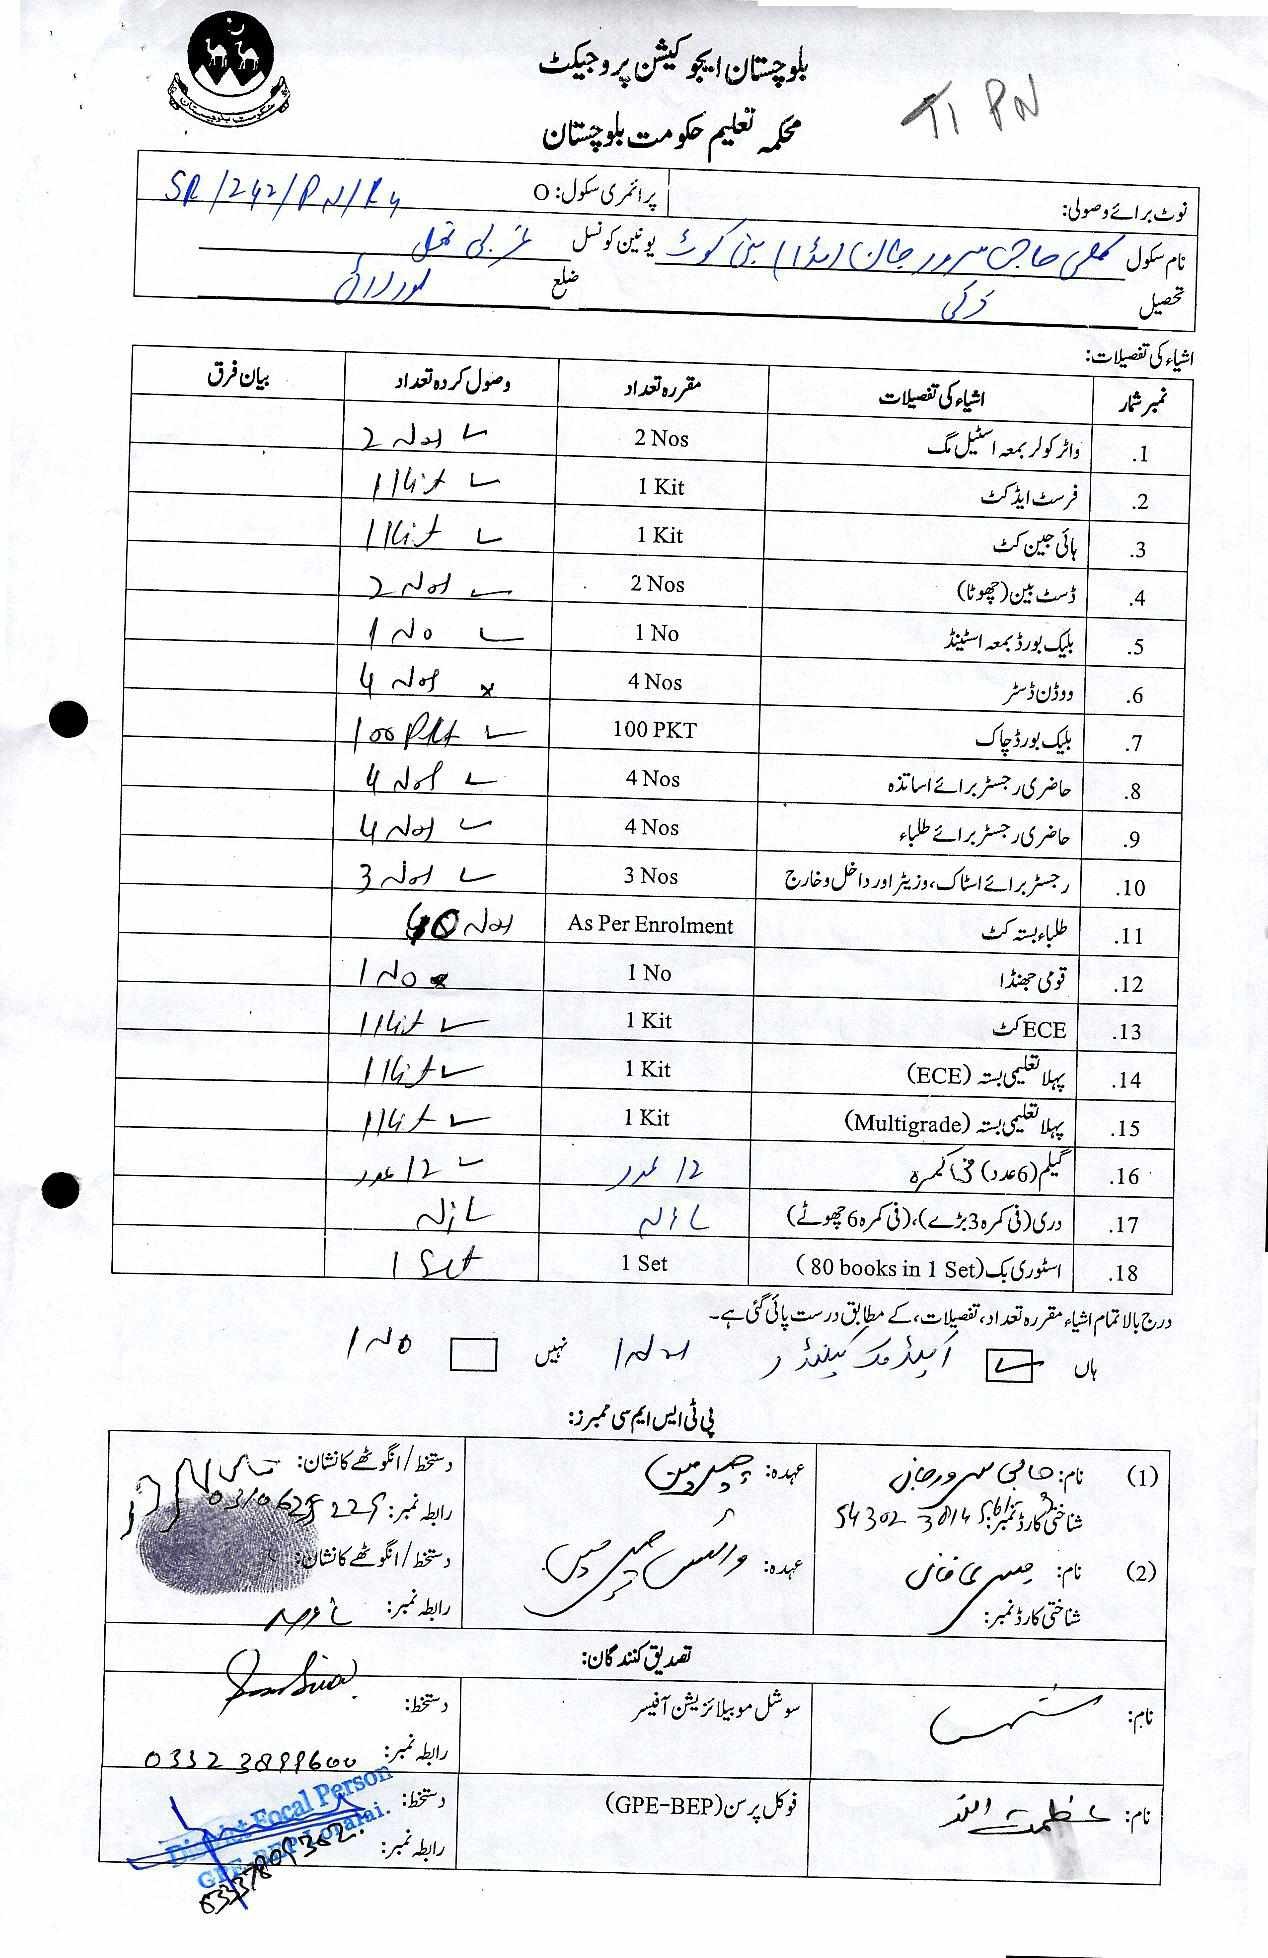 بلوچستان ایجوکیشن پروجیکٹ
T1 PN
محکمہ تعلیم حکومت بلوچستان
نوٹ برائے وصولی: پرائمری سکول: O SR/242/PN/R4
نام سکول کلی حاجی سرور جان کوٹ یونین کونسل غربی تھل
تحصیل دکی ضلع لورلائی
اشیاء کی تفصیلات:
نمبر شمار اشیاء کی تفصیلات مقررہ تعداد وصول کردہ تعداد بیان فرق
1. واٹر کولر بمعہ اسٹیل مگ 2 Nos 2 Nos
2. فرسٹ ایڈ کٹ 1 Kit 1 Kit
3. ہائی جین کٹ 1 Kit 1 Kit
4. ڈسٹ بین (چھوٹا) 2 Nos 2 Nos
5. بلیک بورڈ بمعہ اسٹینڈ 1 No 1 No
6. ووڈن ڈسٹر 4 Nos 4 Nos x
7. بلیک بورڈ چاک 100 PKT 100 PKt
8. حاضری رجسٹر برائے اساتذہ 4 Nos 4 Nos
9. حاضری رجسٹر برائے طلباء 4 Nos 4 Nos
10. رجسٹر برائے اسٹاک، وزیٹر اور داخل و خارج 3 Nos 3 Nos
11. طلباء بستہ کٹ As Per Enrolment Nos
12. قومی جھنڈا 1 No 1 No
13. ECE کٹ 1 Kit 1 Kit
14. پہلا تعلیمی بستہ (ECE) 1 Kit 1 Kit
15. پہلا تعلیمی بستہ (Multigrade) 1 Kit 1 Kit
16. گیلم (6 عدد) فی کمرہ 12 عدد 12 عدد
17. دری (فی کمرہ 3 بڑے)، (فی کمرہ 6 چھوٹے) Nil
18. اسٹوری بک (80 books in 1 Set) 1 Set 1 Set
درج بالا تمام اشیاء مقررہ تعداد، تفصیلات، کے مطابق درست پائی گئی ہے۔
ہاں نہیں 1 No
پی ٹی ایس ایم سی ممبرز:
(1) نام: حاجی سرور جان عہدہ: چیئرمین دستخط/انگوٹھے کا نشان:
شناختی کارڈ نمبر: 54302 رابطہ نمبر:
(2) نام: خان عہدہ: وائس چیئرمین دستخط/انگوٹھے کا نشان:
شناختی کارڈ نمبر: رابطہ نمبر:
تصدیق کنندگان:
نام: شمس سوشل موبیلائزیشن آفیسر دستخط:
رابطہ نمبر: 0332 3899600
نام: عظمت اللہ فوکل پرسن (GPE-BEP) دستخط:
District Focal Person
رابطہ نمبر:
GPE-BEP Loralai.